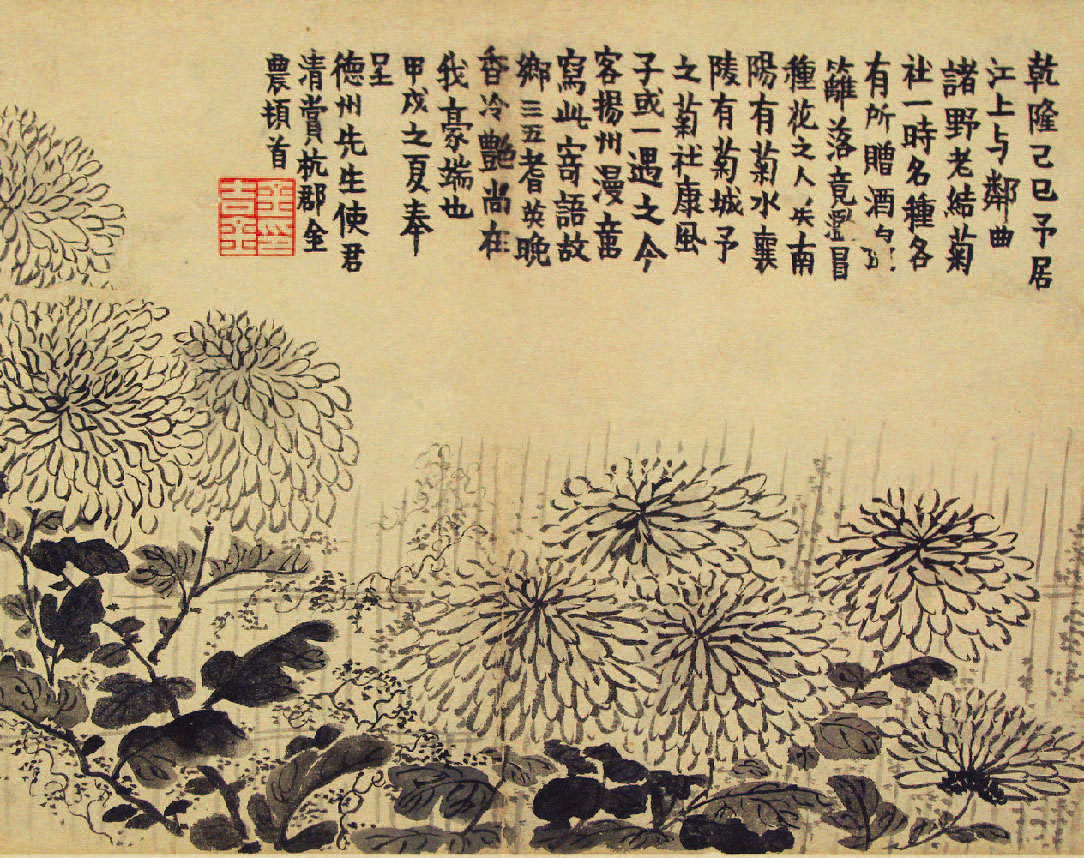 乾隆己巳予居
江上与鄰曲
諸野老結菊
社一時名種各
有所贈酒
籬落竟置冒
種花之人矣南
陽有菊水襄
陵有菊城予
之菊社康風
子或一遇之今
客揚州漫畫
寫此寄語故
鄉三五耆英晚
香冷艷尚在
我豪端也
甲戌之夏奉
呈
德州先生使君
清賞杭郡金
農頓首
金吉金印